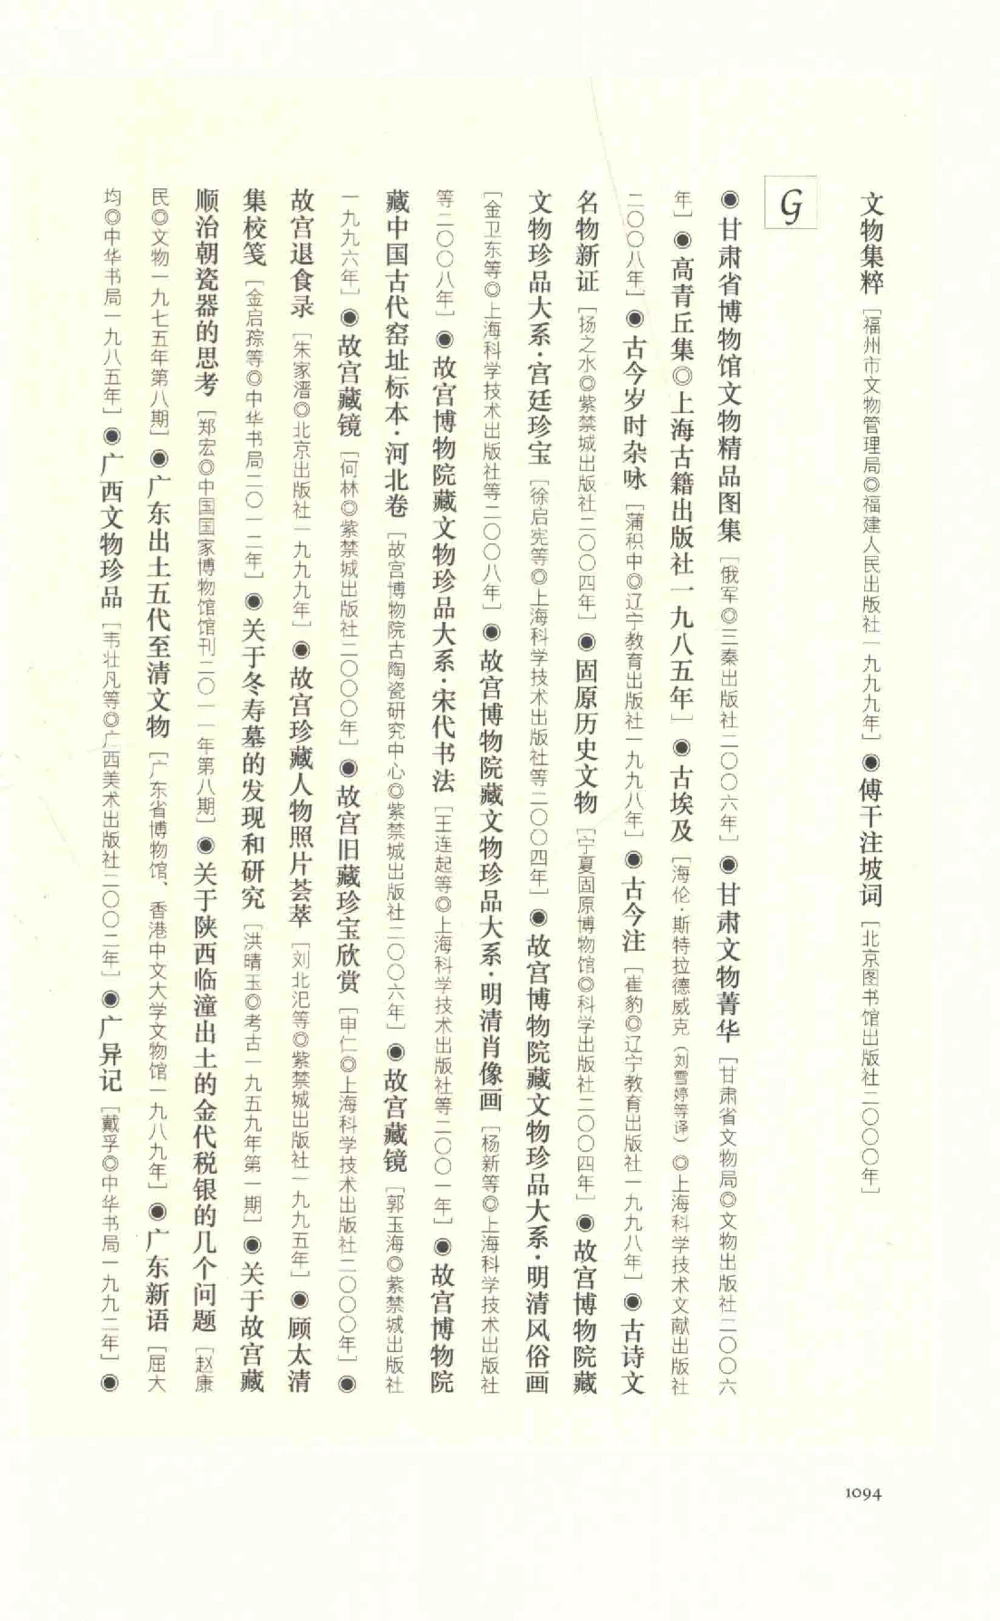 文物集粹［福州市文物管理局◎福建人民出版社一九九九年］◉傅干注坡词［北京图书馆出版社二〇〇〇年］
G
◉甘肃省博物馆文物精品图集［俄军◎三秦出版社二〇〇六年］◉甘肃文物菁华［甘肃省文物局◎文物出版社二〇〇六
年］◉高青丘集◎上海古籍出版社一九八五年］◉古埃及［海伦·斯特拉德威克（刘雪婷等译）◎上海科学技术文献出版社
二〇〇八年］◉古今岁时杂咏［蒲积中◎辽宁教育出版社一九九八年］◉古今注［崔豹◎辽宁教育出版社一九九八年］◉古诗文
名物新证［扬之水◎紫禁城出版社二〇〇四年］◉固原历史文物［宁夏固原博物馆◎科学出版社二〇〇四年］◉故宫博物院藏
文物珍品大系·宫廷珍宝［徐启宪等◎上海科学技术出版社等二〇〇四年］◉故宫博物院藏文物珍品大系·明清风俗画
［金卫东等◎上海科学技术出版社等二〇〇八年］◉故宫博物院藏文物珍品大系·明清肖像画［杨新等◎上海科学技术出版社
等二〇〇八年］◉故宫博物院藏文物珍品大系·宋代书法［王连起等◎上海科学技术出版社等二〇〇一年］◉故宫博物院
藏中国古代窑址标本·河北卷［故宫博物院古陶瓷研究中心◎紫禁城出版社二〇〇六年］◉故宫藏镜［郭玉海◎紫禁城出版社
一九九六年］◉故宫藏镜［何林◎紫禁城出版社二〇〇〇年］◉故宫旧藏珍宝欣赏［申仁◎上海科学技术出版社二〇〇〇年］◉
故宫退食录［朱家溍◎北京出版社一九九九年］◉故宫珍藏人物照片荟萃［刘北汜等◎紫禁城出版社一九九五年］◉顾太清
集校笺［金启孮等◎中华书局二〇一二年］◉关于冬寿墓的发现和研究［洪晴玉◎考古一九五九年第一期］◉关于故宫藏
顺治朝瓷器的思考［郑宏◎中国国家博物馆馆刊二〇一一年第八期］◉关于陕西临潼出土的金代税银的几个问题［赵康
民◎文物一九七五年第八期］◉广东出土五代至清文物［广东省博物馆、香港中文大学文物馆一九八九年］◉广东新语［屈大
均◎中华书局一九八五年］◉广西文物珍品［韦壮凡等◎广西美术出版社二〇〇二年］◉广异记［戴孚◎中华书局一九九二年］◉
1094